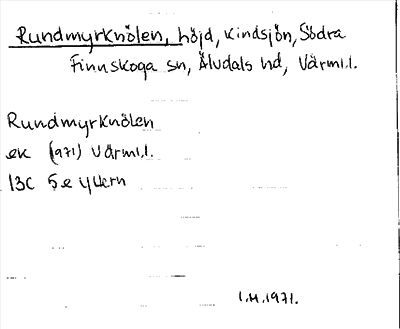 Rundmyrknölen, höjd, Kindsjön, Södra
Finnskoga sn, Älvdals hd, Värml.
Rundmyrknölen
ek (1971) Värml.
13C 5e
1.H.1971.